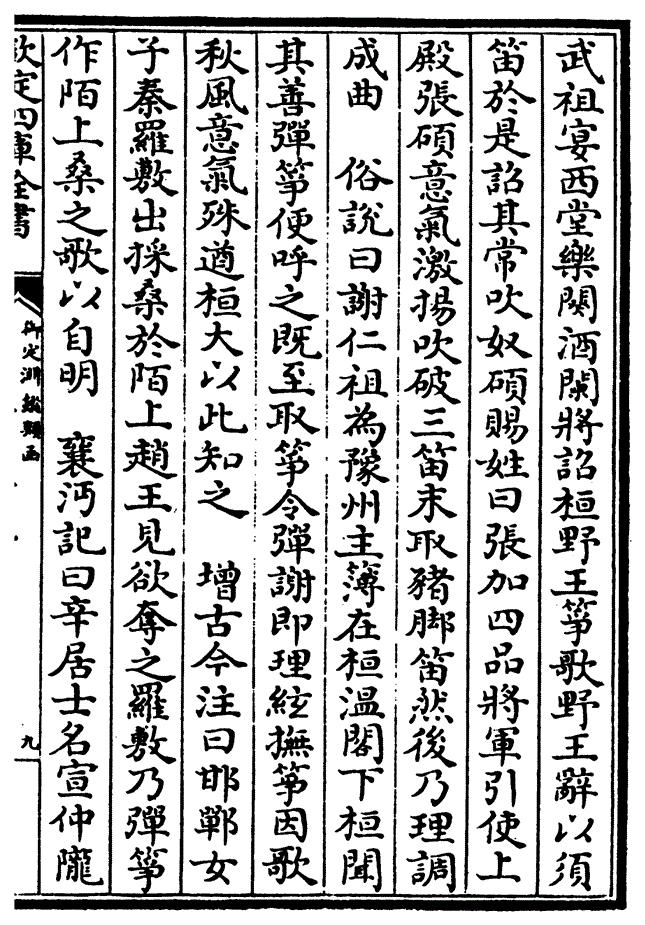 武祖宴西堂樂闋酒闌將詔桓野王箏歌野王辭以須
笛於是詔其常吹奴碩賜姓曰張加四品將軍引使上
殿張碩意氣激揚吹破三笛末取豬脚笛然後乃理調
成曲　俗說曰謝仁祖為豫州主簿在桓溫閣下桓聞
其善彈箏便呼之既至取箏令彈謝即理絃撫箏因歌
秋風意氣殊遒桓大以此知之　增古今注曰邯鄲女
子秦羅敷出採桑於陌上趙王見欲奪之羅敷乃彈箏
作陌上桑之歌以自明　襄沔記曰辛居士名宣仲隴
欽定四庫全書
御定淵鑑類函
九